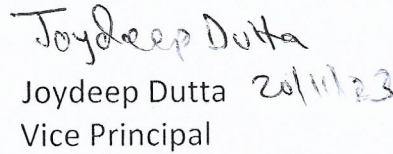 Joydeep Dutta
Joydeep Dutta 20/11/23
Vice Principal